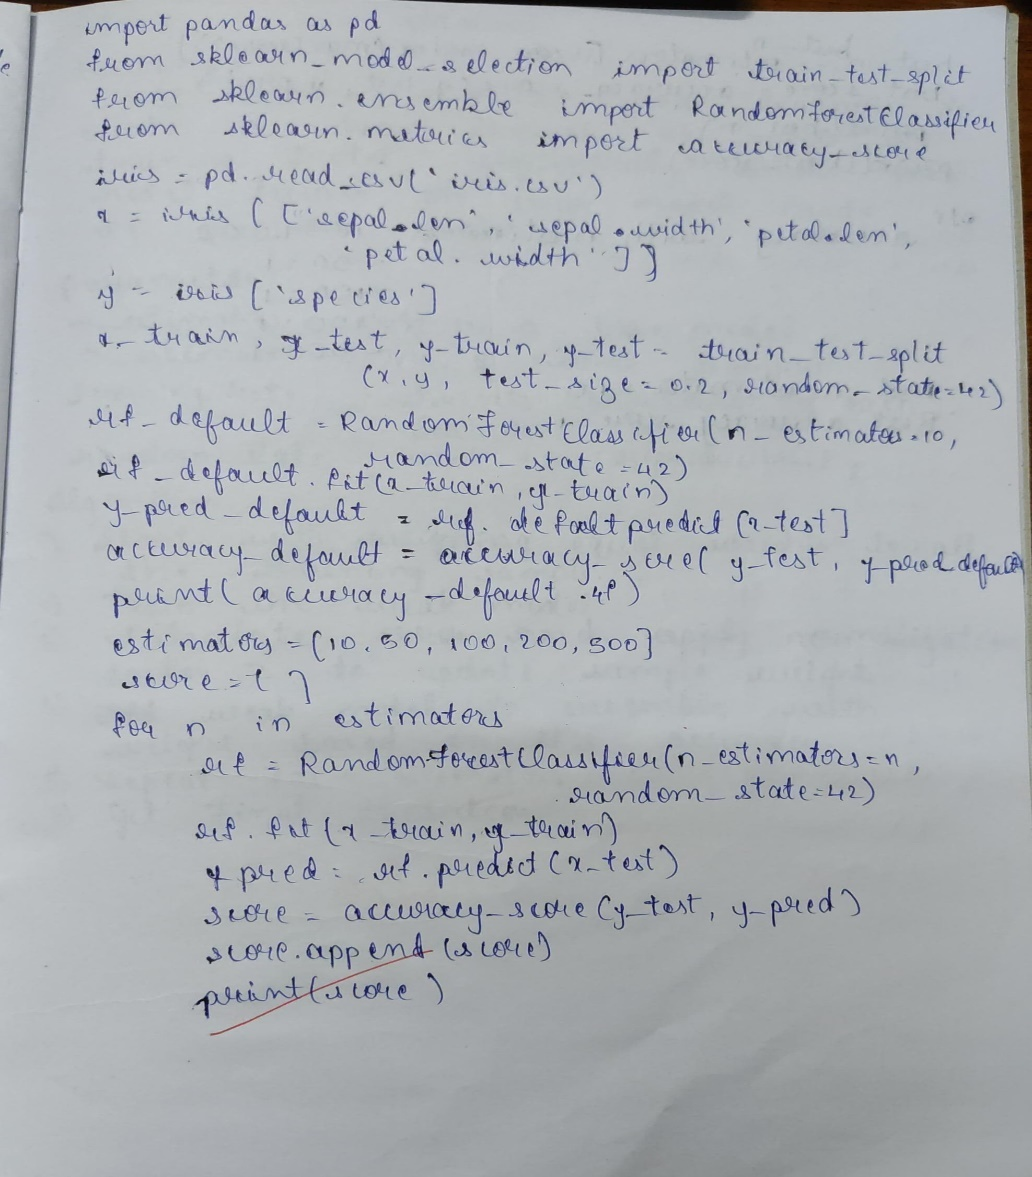 import pandas as pd
from sklearn_model_selection import train_test_split
from sklearn.ensemble import RandomforestClassifier
from sklearn.metrics import accuracy_score
iris = pd.read_csv('iris.csv')
x = iris [['sepal.len', 'sepal.width', 'petal.len',
'petal.width']]
y = iris ['species']
x_train, x_test, y_train, y_test = train_test_split
(x, y, test_size=0.2, random_state=42)
rf_default = RandomForestClassifier(n_estimators=10,
random_state=42)
rf_default.fit(x_train, y_train)
y_pred_default = rf.default predict (x_test]
accuracy_default = accuracy_score( y_test, y_pred default
print( accuracy_default .4f)
estimators = [10, 50, 100, 200, 500]
score = [ ]
for n in estimators
rf = RandomForestClassifier(n_estimators=n,
random_state=42)
rf.fit (x_train, y_train)
y pred = rf.predict (x_test)
score = accuracy_score (y_test, y_pred)
score.append (score)
print(score)